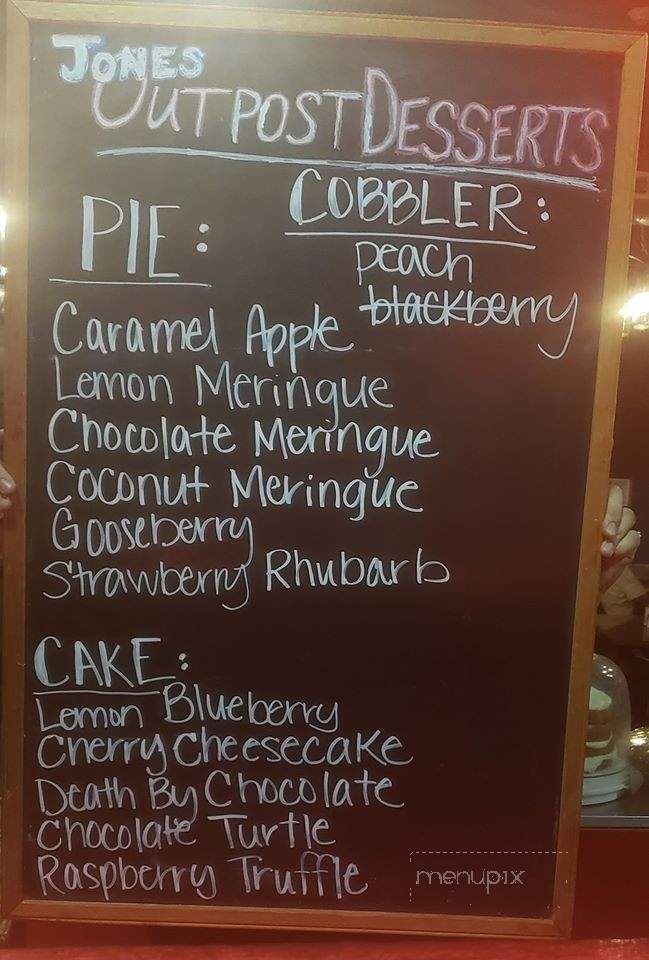 JONES
OUTPOST DESSERTS
PIE:
COBBLER:
peach
blackberry
Caramel Apple
Lemon Meringue
Chocolate Meringue
Coconut Meringue
Gooseberry
Strawberry Rhubarb
CAKE:
Lemon Blueberry
Cherry Cheesecake
Death By Chocolate
Chocolate Turtle
Raspberry Truffle
menupix